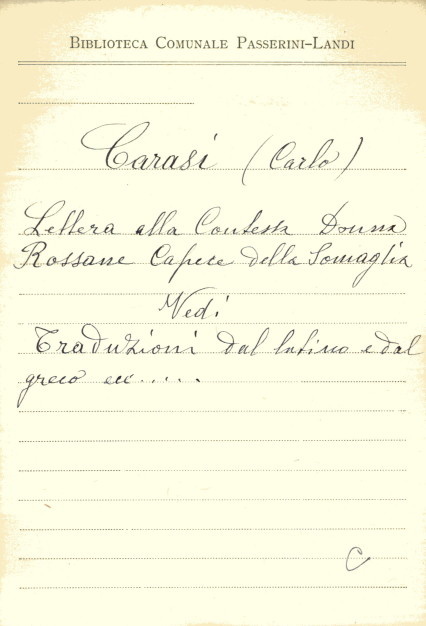 BIBLIOTECA COMUNALE PASSERINI-LANDI
Carasi (Carlo)
Lettera alla Contessa Donna
Rossane Capece della Somaglia
Vedi
Traduzioni dal latino e dal
greco ecc.....
C